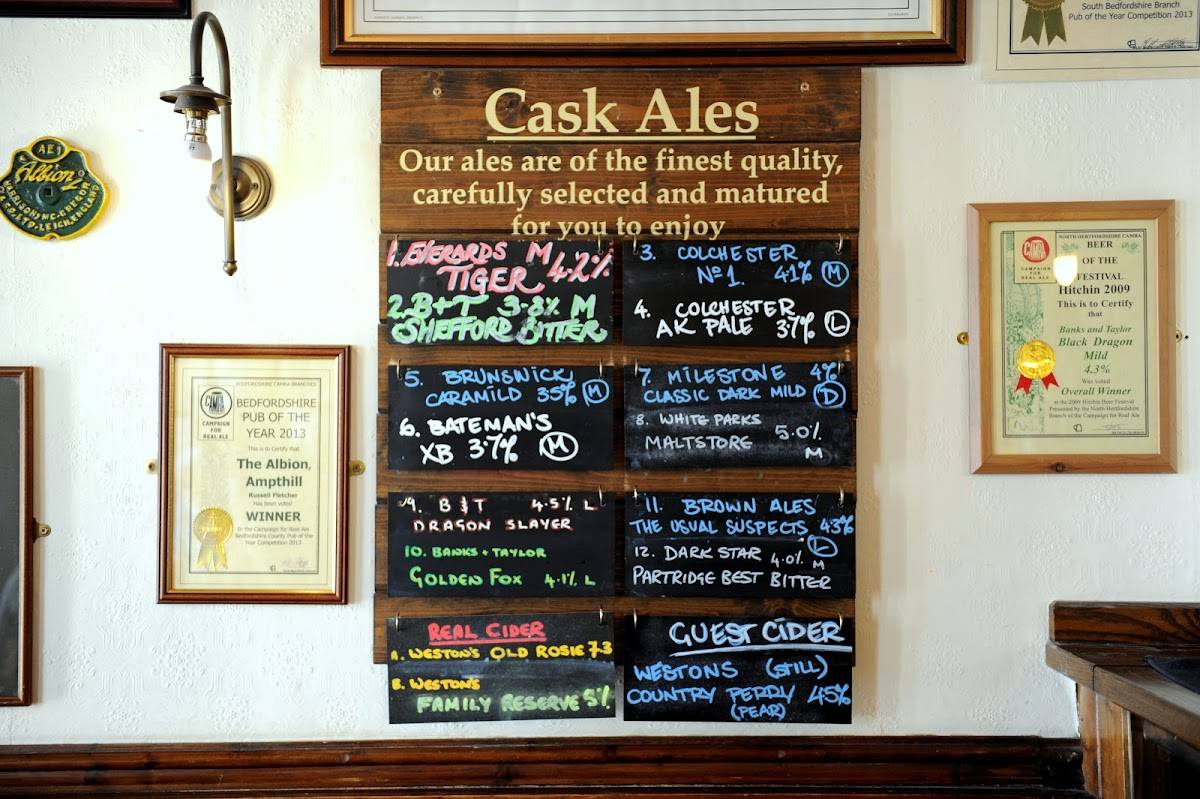 South Bedfordshire Branch
Pub of the Year Competition 2013
AE1
Albion
HARRISON, McGREGOR
& CO. LTD. LEIGH, ENGLAND
Cask Ales
Our ales are of the finest quality,
carefully selected and matured
for you to enjoy
1. EVERARDS M
TIGER 4.2%
2. B+T 3-8% M
SHEFFORD BITTER
3. COLCHESTER
Nº1. 41% M
4. COLCHESTER
AK PALE 37% L
5. BRUNSWICK
CARAMILD 35% M
6. BATEMAN'S
XB 3.7% M
7. MILESTONE 4%
CLASSIC DARK MILD D
8. WHITE PARKS
MALTSTORE 5.0%
M
9. B & T 4.5% L
DRAGON SLAYER
10. BANKS + TAYLOR
GOLDEN FOX 4.1% L
11. BROWN ALES
THE USUAL SUSPECTS 43%
L
12. DARK STAR 4.0% M
PARTRIDGE BEST BITTER
REAL CIDER
A. WESTON'S OLD ROSIE 7.3
B. WESTON'S
FAMILY RESERVE 5%
GUEST CIDER
WESTONS (STILL)
COUNTRY PERRY 45%
(PEAR)
BEDFORDSHIRE CAMRA BRANCHES
CAMRA
CAMPAIGN
FOR
REAL ALE
BEDFORDSHIRE
PUB OF THE
YEAR 2013
This is to Certify that
The Albion,
Ampthill
Russell Fletcher
Has been voted
WINNER
By the Campaign for Real Ale
Bedfordshire County Pub of the
Year Competition 2013
NORTH HERTFORDSHIRE CAMRA
CAMRA
CAMPAIGN
FOR
REAL ALE
BEER
OF THE
FESTIVAL
Hitchin 2009
This is to Certify
that
Banks and Taylor
Black Dragon
Mild
4.3%
Was voted
Overall Winner
at the 2009 Hitchin Beer Festival
Presented by the North Hertfordshire
Branch of the Campaign for Real Ale